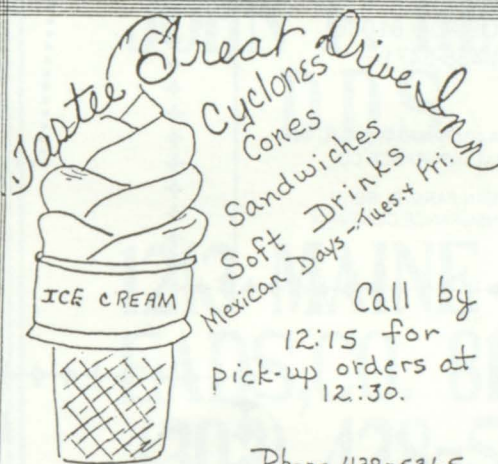 Tastee Great Drive Inn
Cyclones
Cones
Sandwiches
Soft Drinks
Mexican Days - Tues. & Fri.
ICE CREAM
Call by
12:15 for
pick-up orders at
12:30.